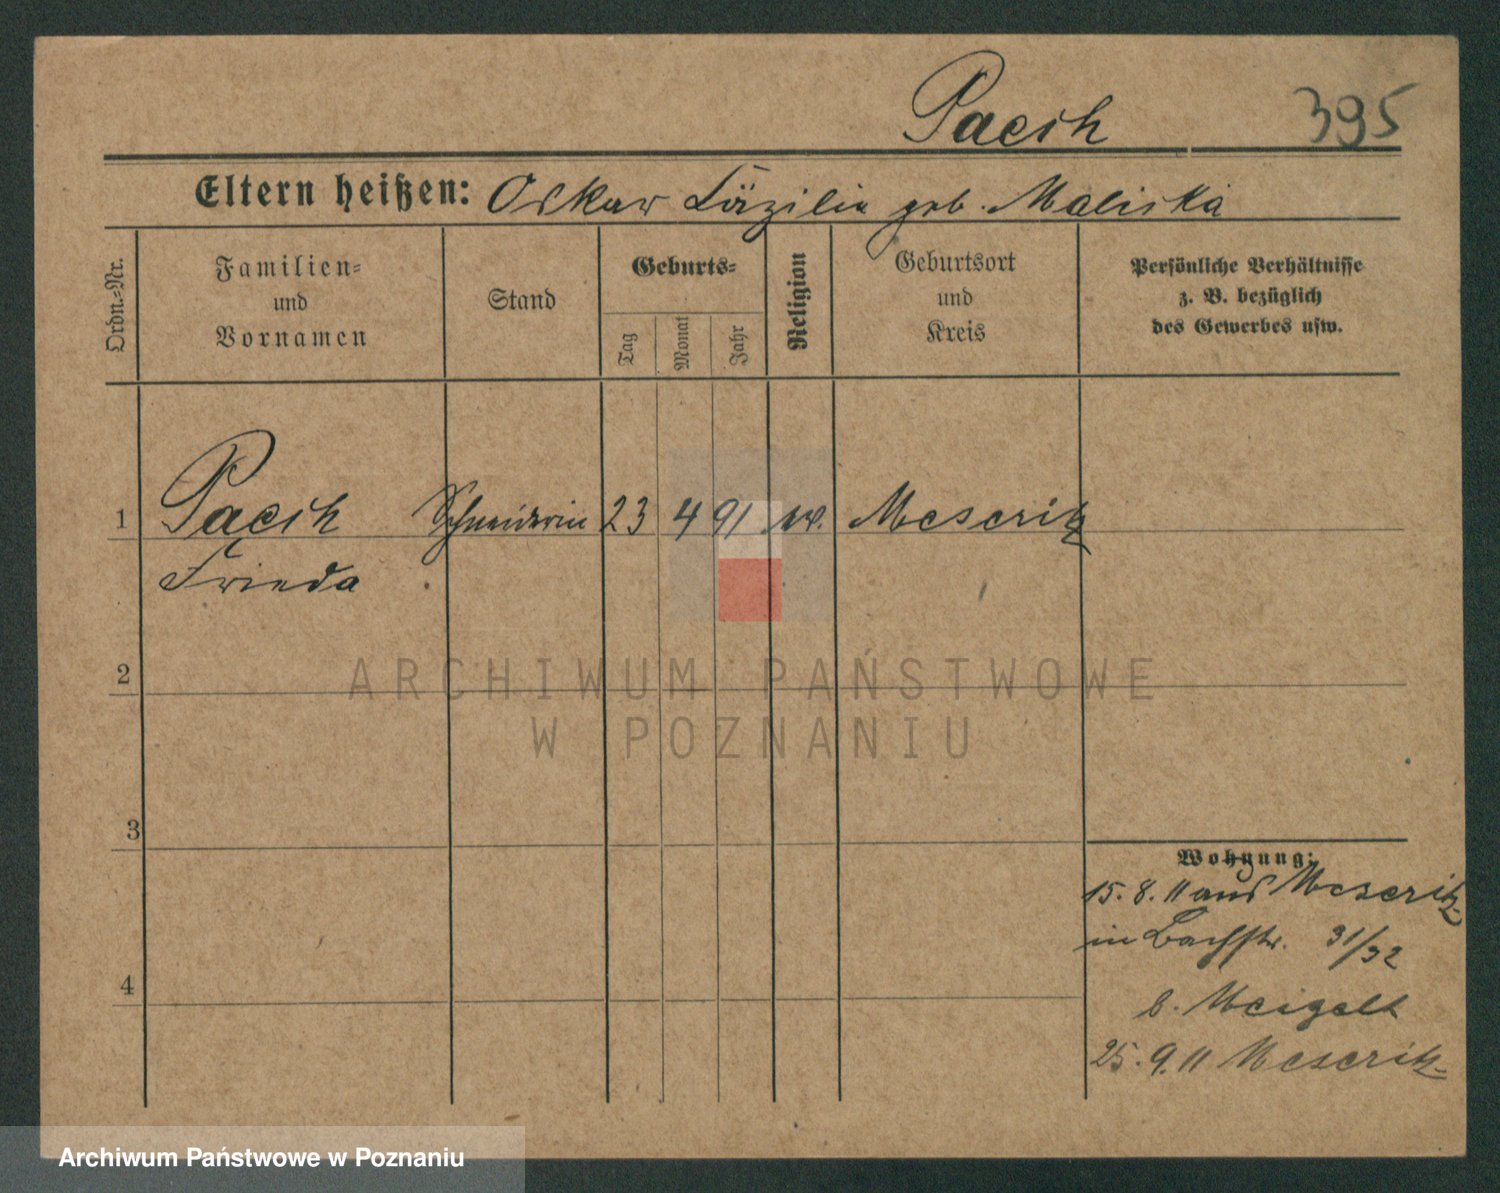 Paesch
395
Eltern heißen: Oskar Zäzilie geb. Maliska
Ordn.-Nr.
Familien-
und
Vornamen
Stand
Geburts-
Tag
Monat
Jahr
Religion
Geburtsort
und
Kreis
Persönliche Verhältnisse
z. B. bezüglich
des Gewerbes usw.
1 Paesch Schneiderin 23 4 91 Meseritz
Frieda
2
3
4
Wohnung:
15. 8. 11 aus Meseritz
in Bachstr. 31/32
b. Weigelt
25. 9. 11 Meseritz
ARCHIWUM PAŃSTWOWE
W POZNANIU
Archiwum Państwowe w Poznaniu